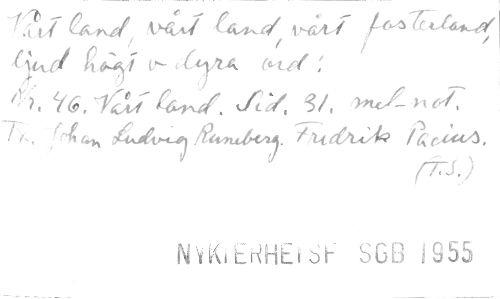 Vårt land, vårt land, vårt fosterland,
ljud högt o dyra ord!
Nr. 46. Vårt land. Sid. 31. mel-not.
T. Johan Ludvig Runeberg. Fredrik Pacius.
(T.S.)
NYKTERHETSF SGB 1955